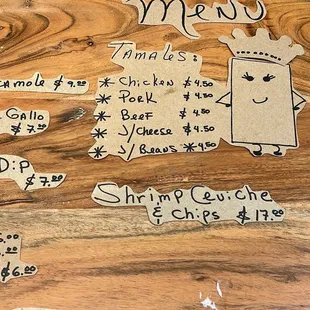 Menu
Tamales:
* Chicken $4.50
* Pork $4.50
* Beef $4.50
* J/Cheese $4.50
* J/Beans *4.50
camole $9.00
Gallo
$7.00
Dip
$7.00
Shrimp Ceviche
& Chips $17.00
$6.00